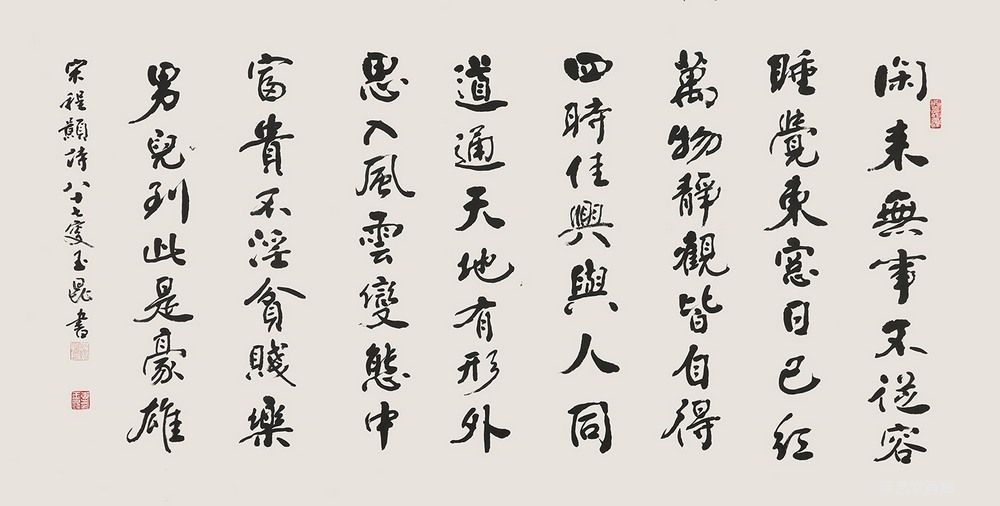 閑來無事不從容
睡覺東窓日已紅
萬物靜觀皆自得
四時佳興與人同
道通天地有形外
思入風雲變態中
富貴不淫貧賤樂
男兒到此是豪雄
宋程顥詩八十七叟玉崑書